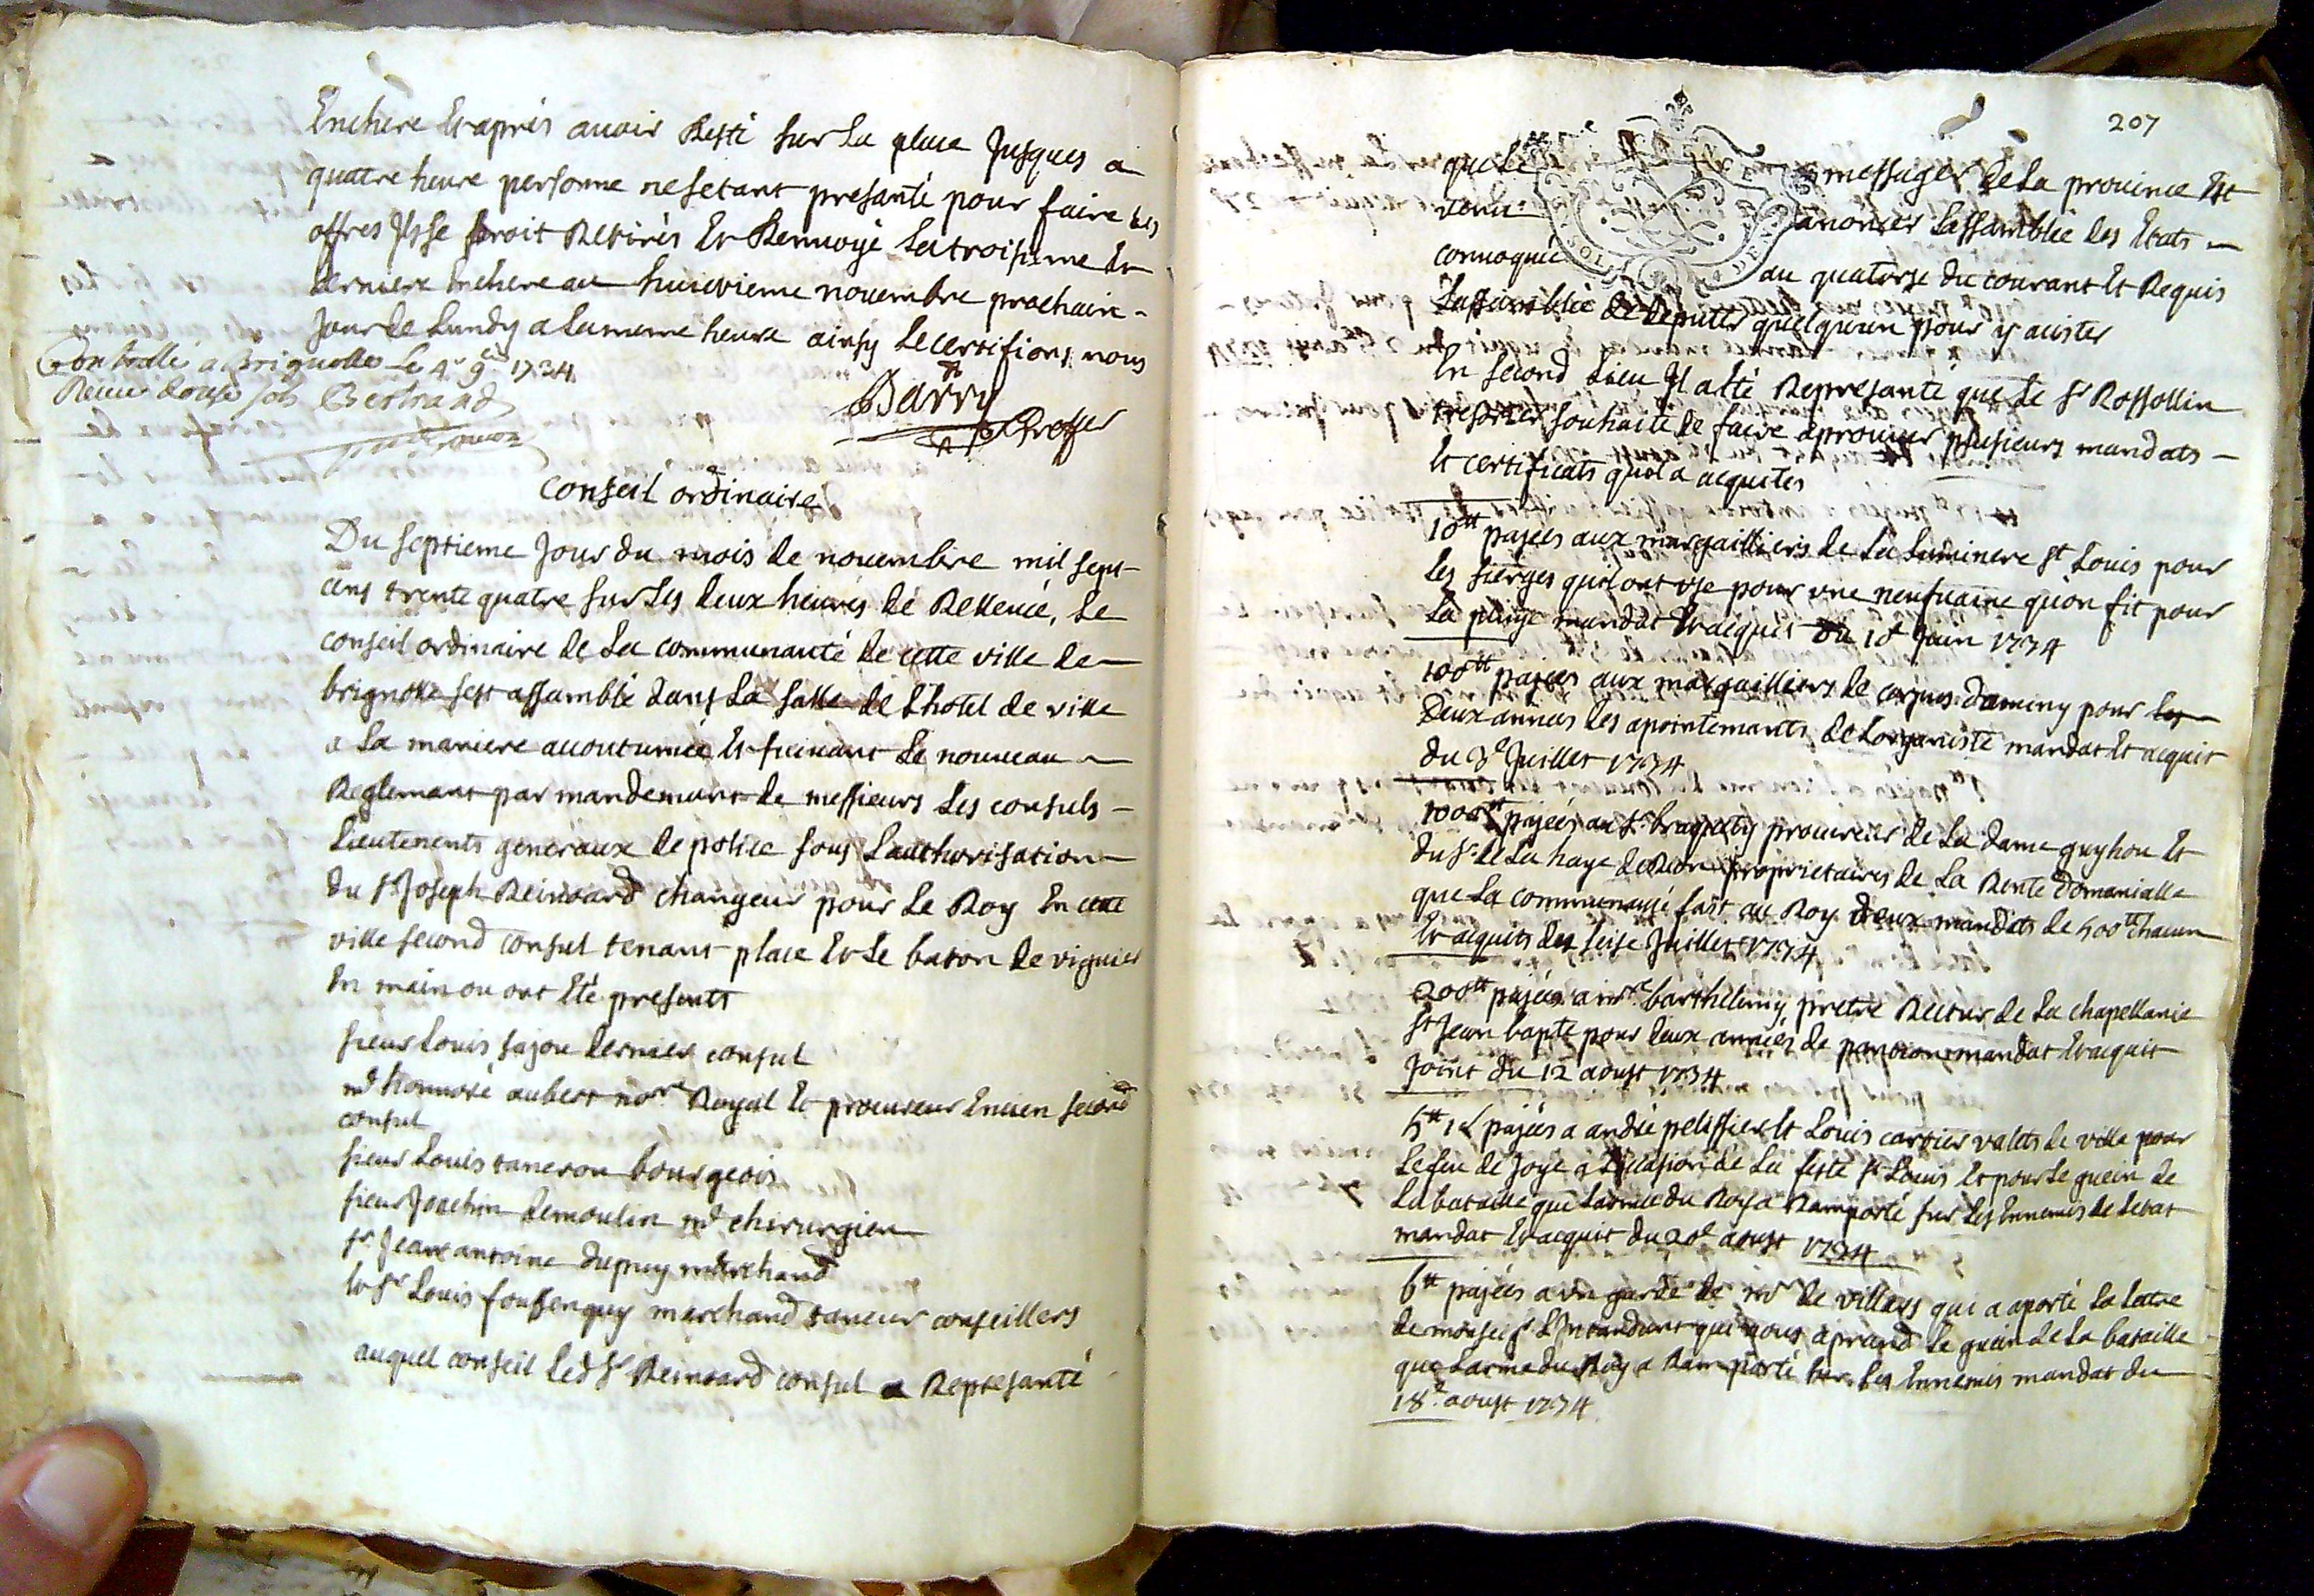 Enchere Et apres auoir Resté sur La place Jusques a
quatre heure personne nesetant presanté pour faire des
offres Jlsse seroit Retirés Et Renuoyé La troisieme Et
derniere Enchere au huictieme nouembre prochain
Jour de Lundy a Lameme heure ainsy Le certifions nous
Controllé a Brignolle Le 4e 9bre 1734
Receu douse sols Bertrand
Barry
Conseil ordinaire
Du septieme Jour du mois de nouembre mil sept
cens trente quatre sur Les deux heures de Releueé, Le
conseil ordinaire de La communauté de cette ville de
brignolle sest assamblé dans La salle de Lhotel de ville
a La maniere accoutumeé Et suiuant Le nouueau
Reglemant par mandemant de messieurs Les consuls
Lieutenents generaux de police sous Lauthorisation
du sr Joseph Reinoard changeur pour Le Roy En cette
ville second consul tenant place Et Le baton de viguier
En main ou ont Eté presents
sieur Louis fajou dernier consul
me honnoré aubert nore Royal Et procureur Encien second
consul
sieur Louis taneron bourgeois
sieur Joachin demoulin me chirurgien
sr Jean antoine dupuy marchand
Et sr Louis foussenquy marchand taneur conseillers
auquel conseil Led sr Reinoard consul a Represanté
207
que Le messager de La prouince Est
venu anoncer Lassamblée des Etats
conuoquée au quatorse du courant Et Requis
Lassamblée de deputer quelquun pour y acister
En second Lieu Jl a Eté Represanté que Le sr Rossollin
tresorier souhaite de faire aprouuer plusieurs mandats
Et certificats quil a acquités
18tt pajées aux margailliers de La Luminere st Louis pour
Les sierges quil ont vse pour vne neufuaine quon fit pour
La pluye mandat Et acquit du 18 Juin 1734
100tt pajées aux margailliers de corpus dominy pour
deux années des apointemants de Lorganiste mandat Et acquit
du 3e Juillet 1734
1000tt pajées au sr braquety procureur de La dame guyhou Et
du sr de La haye proprietaires de La Rente domanialle
que La communauté fait au Roy deux mandats de 500tt chacun
Et acquits des seise Juillet 1734
200tt pajées a mre barthelemy pretre Recteur de La chapellanie
st Jean bapte pour deux années de pantion mandat Et acquit
Joint du 12 aoust 1734
5tt pajées a andré pelissier Et Louis cartier valets de ville pour
Le feu de Joye a Loccasion de La feste st Louis Et pour Le guein de
La bataille que Larmée du Roy a Ramporté sur Les Ennemis de Letat
mandat Et acquit du 20e aoust 1734
6tt pajées a vn garde de mr de villars qui a aporté La Lettre
de monseigr Lintandant qui nous aprand Le guein de La bataille
que Larmé du Roy a Ramporté sur Les Ennemis mandat du
18e aoust 1734